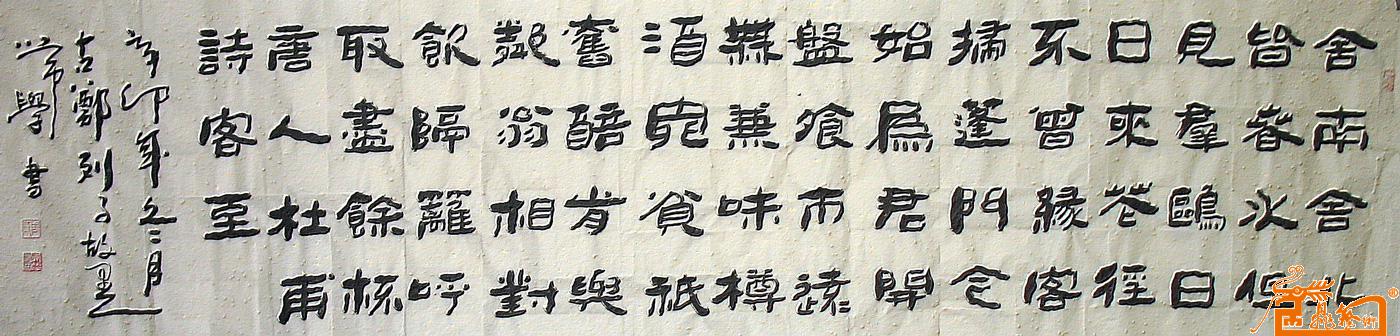 舍南舍北
皆春水但
見羣鷗日
日來花徑
不曾緣客
掃蓬門今
始為君開
盤飧市遠
無兼味樽
酒家貧衹
舊醅肯與
鄰翁相對
飲隔籬呼
取盡餘杯
唐人杜甫
詩客至
辛卯年冬二月
古鄭列子故里
學書